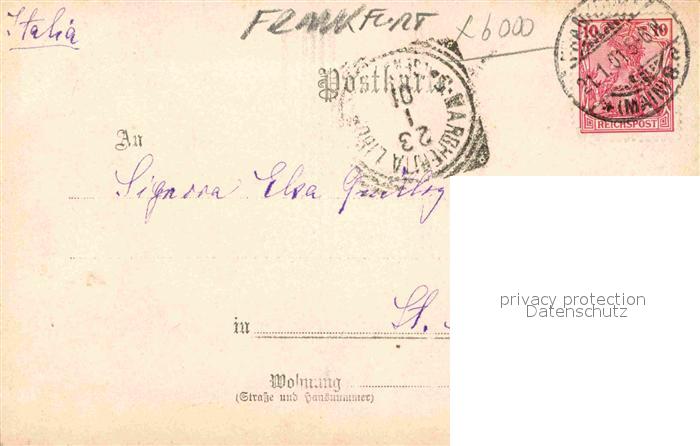 Italia
FRANKFURT
£6000
10 10
REICHSPOST
(MAIN)
Postkarte
S. MARGHERITA
23
1
01
An
Signora Elsa
privacy protection
Datenschutz
in St.
Wohnung
(Straße und Hausnummer)